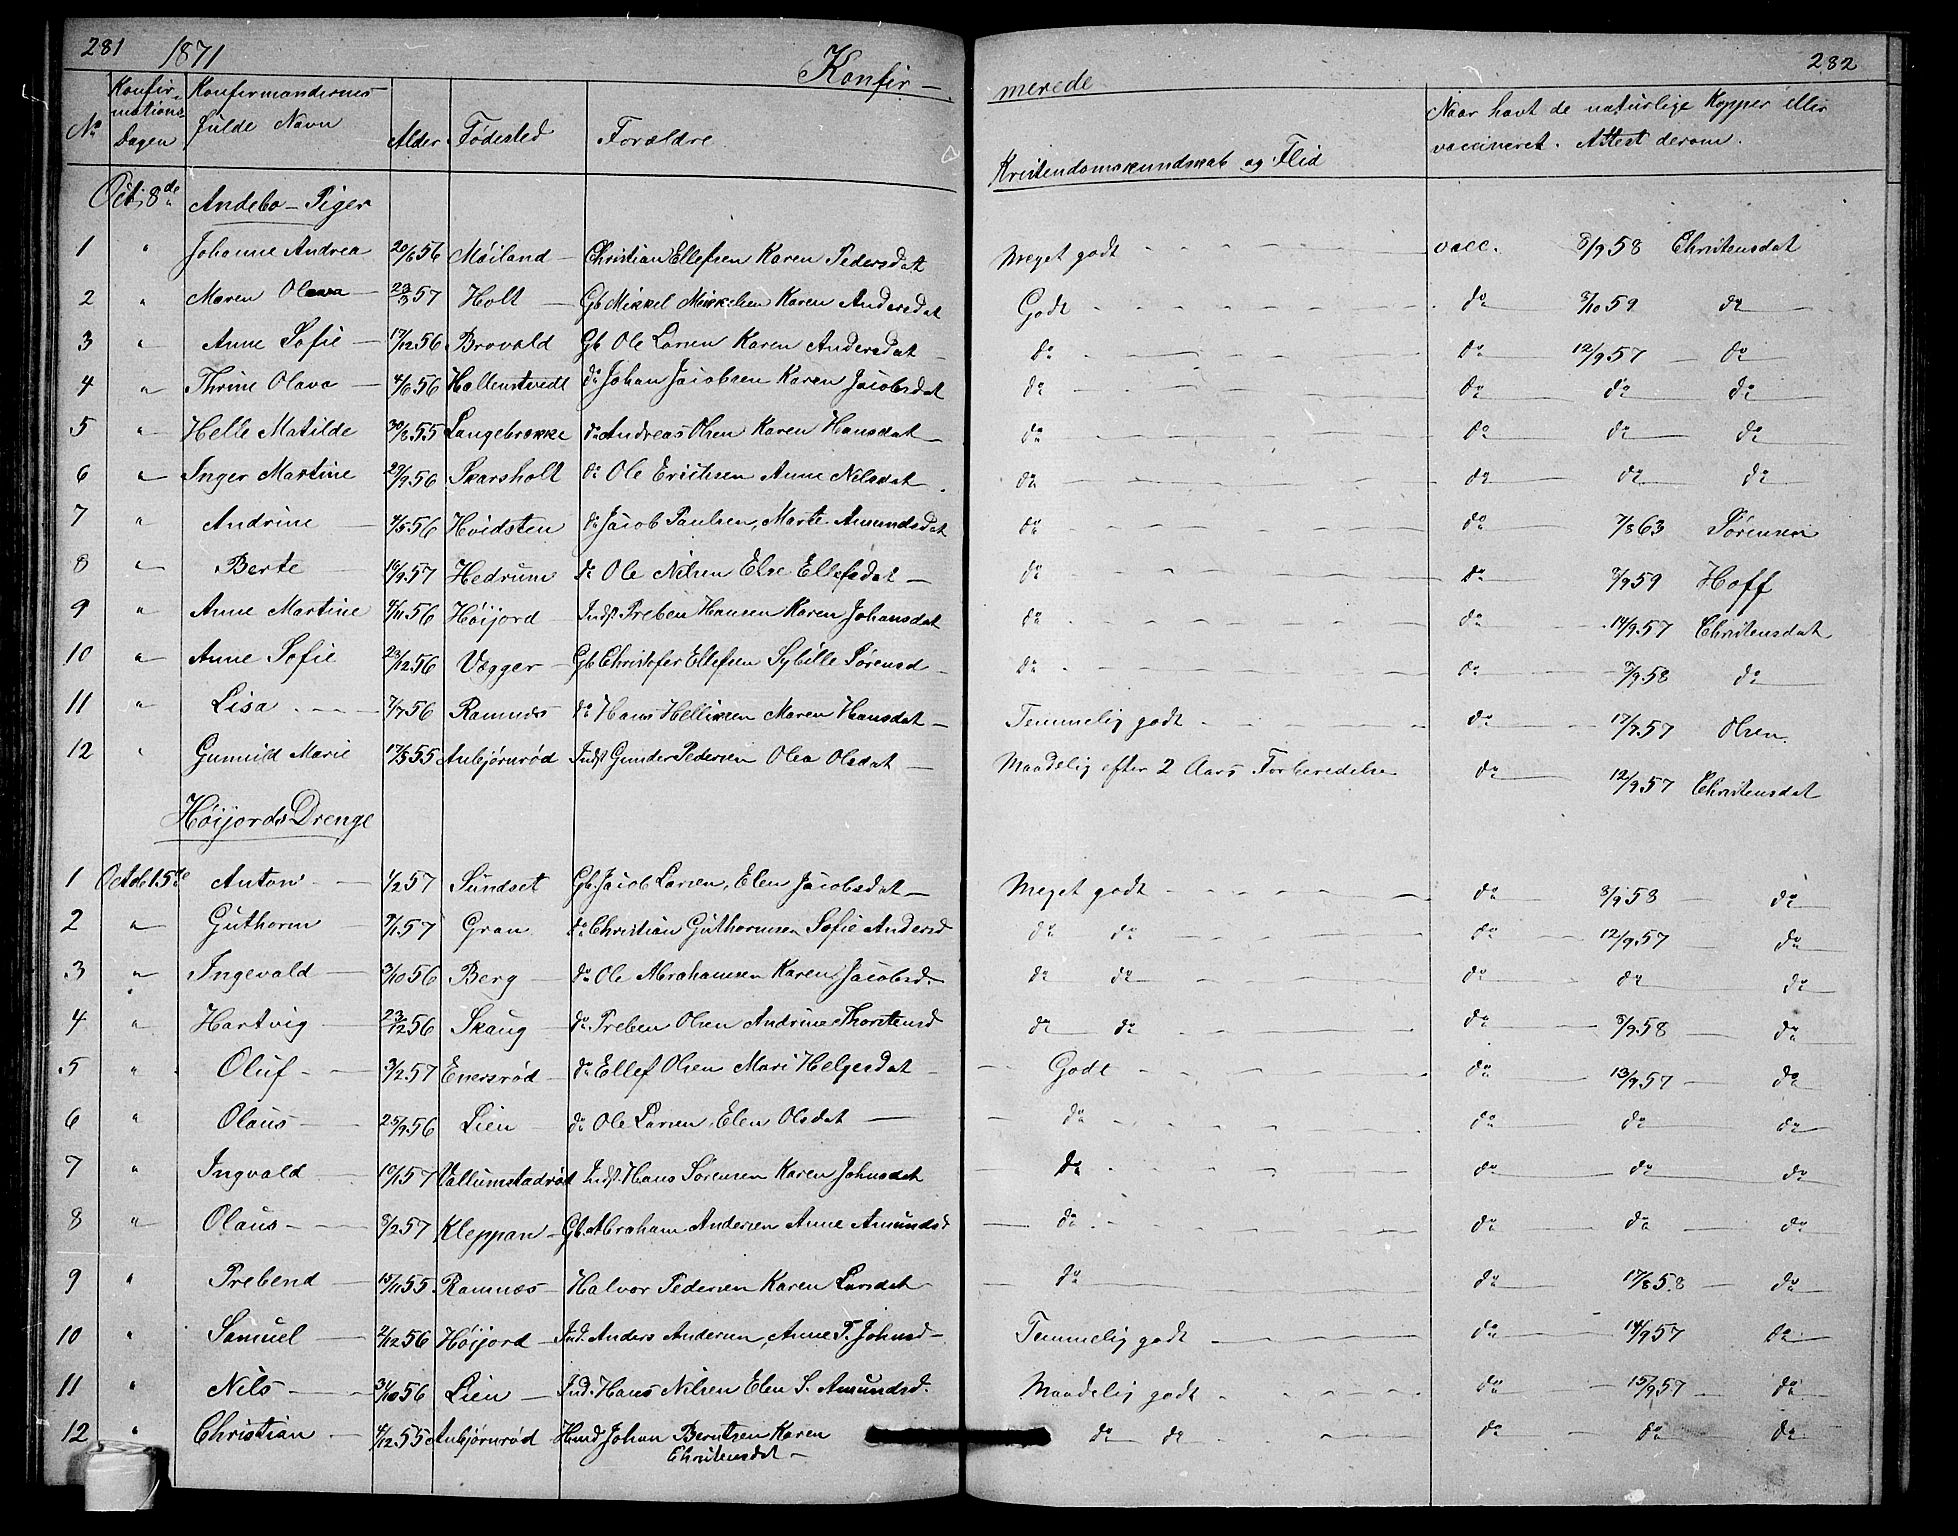 281 1871 Konfir-
merede 282
No Konfirmations Dagen Konfirmandernes fulde Navn Alder Fødested Forældre Kristendomskundskab og Flid Naar havt de naturlige Kopper eller vaccineret. Attest derom.
Oct. 8de Andebo - Piger
1 " Johanne Andrea 20/6 56 Møiland Christian Ellefsen Karen Pedersdat Meget godt vacc. 8/9 58 Christensdat
2 " Maren Olava 23/3 57 Holt Gb Mikkel Mikkelsen Karen Andersdat Godt do 8/10 59 do
3 " Anne Sofie 17/12 56 Brovald Gb Ole Larsen Karen Andersdat do do 12/9 57 do
4 " Thrine Olava 4/6 56 Hallenstvedt do Johan Jacobsen Karen Jacobsdat do do do do
5 " Helle Matilde 30/8 55 Langebrekke do Andreas Olsen Karen Hansdat do do do do
6 " Inger Martine 29/9 56 Skarsholt do Ole Erichsen Anne Nilsdat do do do do
7 " Andrine 4/5 56 Hvidsten do Jacob Paulsen, Marte Amundsdat do do 7/8 63 Sørensen
8 " Berte 16/9 57 Hedrum do Ole Nilsen Else Ellefsdat do do 9/9 59 Hoff
9 " Anne Martine 8/11 56 Høijord Inds. Preben Hansen Karen Johansdat do do 14/9 57 Christensdat
10 " Anne Sofie 23/12 56 Vegger Gb Christofer Ellefsen Sybille Sørensd do do 9/9 58 do
11 " Lisa 7/7 56 Ramnes do Hans Helliksen Maren Hansdat Temmelig godt do 17/9 57 Olsen
12 " Gunnild Marie 17/5 55 Anbjørnrød Inds Gunder Pedersen Olea Olsdat Maadelig efter 2 Aars Forberedelse do 12/9 57 Christensdat
Høijords Drenge
1 Octob 15de Anton 1/2 57 Sundset Gb. Jacob Larsen, Elen Jacobsdat Meget godt do 8/9 58 do
2 " Guthorm 9/1 57 Gran do Christian Guthormsen Sofie Andersd do do do 12/9 57 do
3 " Ingevald 3/10 56 Berg do Ole Abrahamsen Karen Jacobsd. do do do do do
4 " Hartvig 23/12 56 Skaug do Preben Olsen Andrine Thorstensd do do do 8/9 58 do
5 " Oluf 3/2 57 Enersrød do Ellef Olsen Mari Helgesdat Godt do 13/9 57 do
6 " Olaus 25/9 56 Lien do Ole Larsen, Elen Olsdat do do do do
7 " Ingvald 10/1 57 Vallumstadrød Inds. Hans Sørensen Karen Johnsdat do do do do
8 " Olaus 8/2 57 Kleppan Gb. Abraham Andersen Anne Amundsd do do do do
9 " Prebend 15/11 55 Ramnæs Halvor Pedersen Karen Larsdat do do 17/8 58 do
10 " Samuel 2/12 56 Høijord Ind. Anders Andersen, Anne P. Johnsd Temmelig godt do 14/9 57 do
11 " Nils 31/10 56 Lien Ind. Hans Nilsen Elen S. Amundsd. Maadelig godt do 15/9 57 do
12 " Christian 4/12 55 Anbjørnrød Hmd Johan Berntsen Karen do do do do do
Christensdat